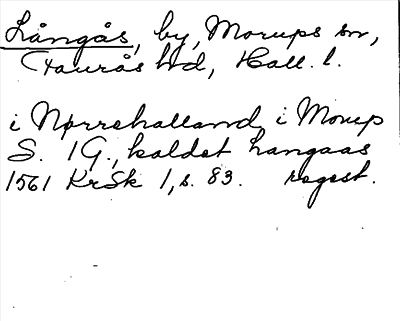 Långås, by, Morups sn,
Faurås hd, Hall. l.
i Nørrehalland i Morup
S. 1 G., kaldet Langaas
1561 KrSk 1, s. 83. regest.